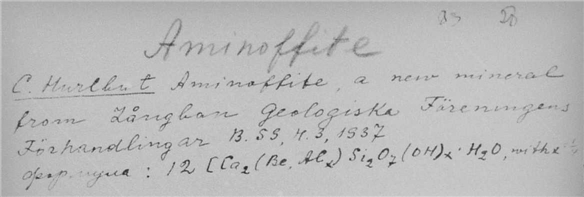 Aminoffite
C. Hurlbut Aminoffite, a new mineral
from Långban Geologiska Föreningens
Förhandlingar B. 59, H. 3, 1937
формула: 12 [Ca₂(Be, Alₓ) Si₂O₇(OH)ₓ · H₂O, with x